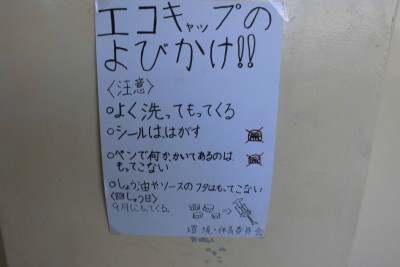 エコキャップの
よびかけ!!
〈注意〉
○よく洗ってもってくる
○シールは、はがす
○ペンで何か、かいてあるのは
もってこない
○しょう油やソースのフタはもってこない
〈回しゅう日〉
9月にもってくる。
環境・伊高委員会